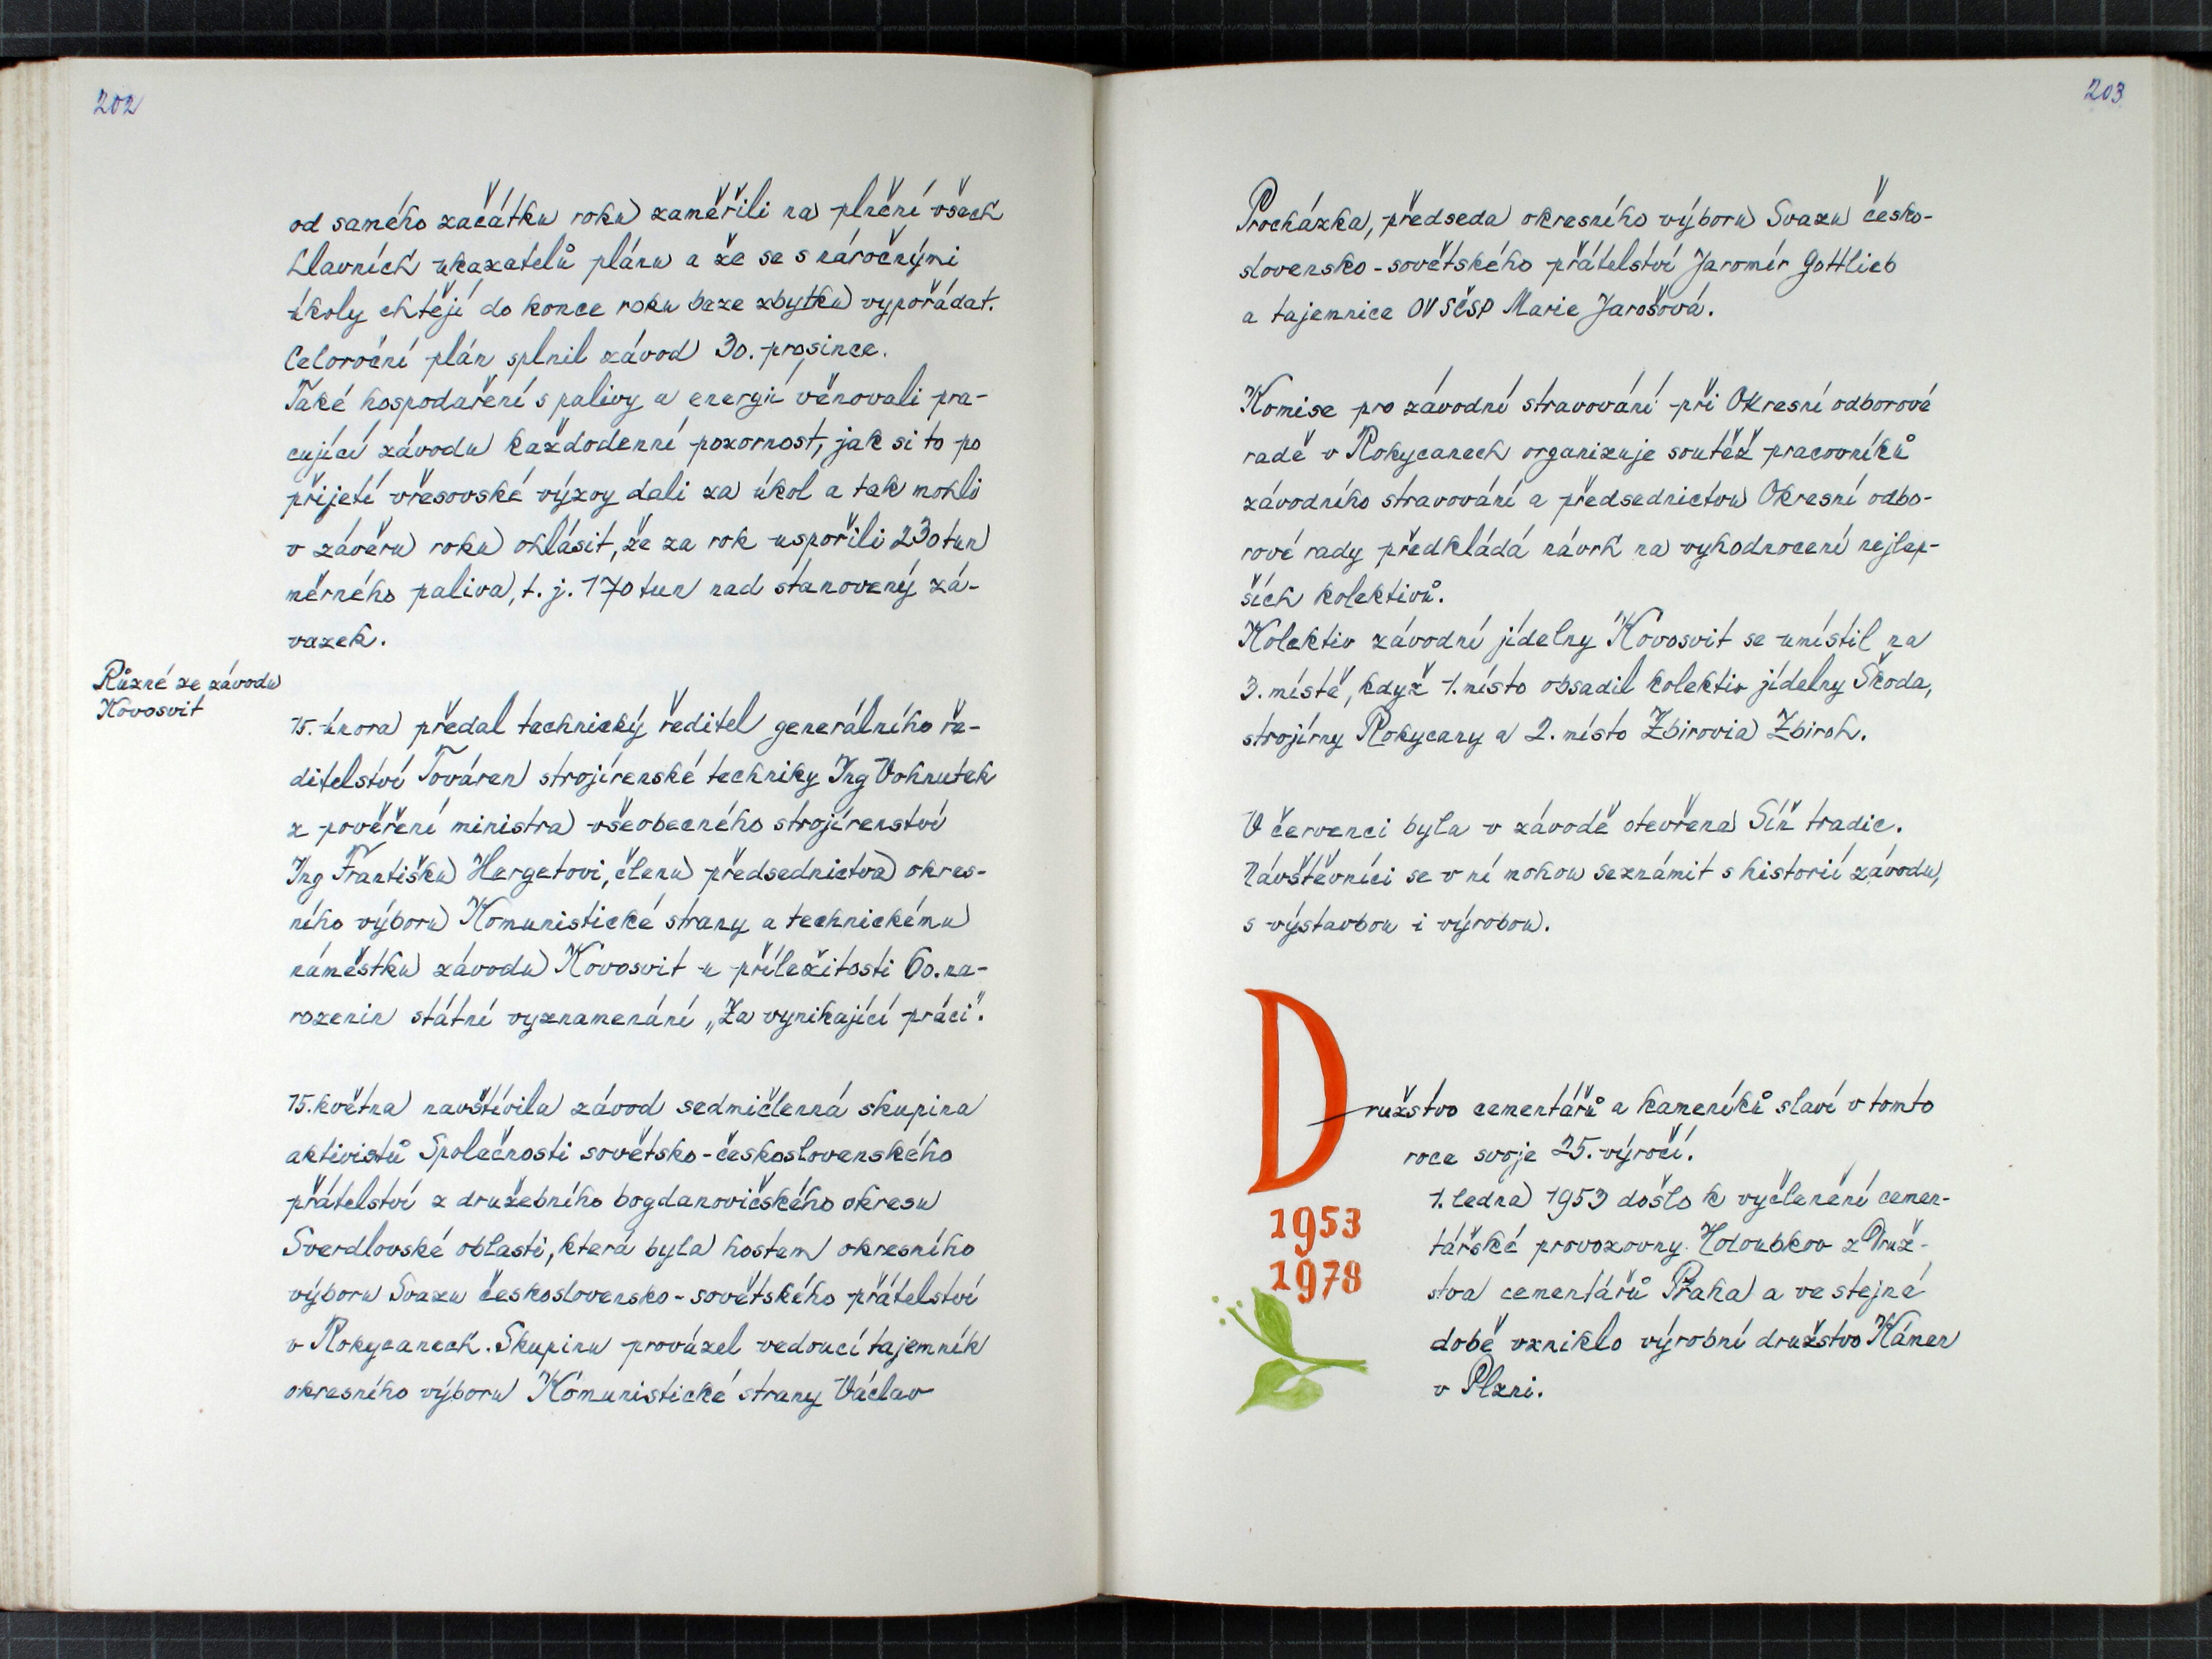 202
od samého začátku roku zaměřili na plnění všech
hlavních ukazatelů plánu a že se s náročnými
úkoly chtějí do konce roku beze zbytku vypořádat.
Celoroční plán splnil závod 30. prosince.
Také hospodaření s palivy a energií věnovali pra-
cující závodu každodenní pozornost, jak si to po
přijetí vřesovské výzvy dali za úkol a tak mohli
v závěru roku ohlásit, že za rok uspořili 230 tun
měrného paliva, t. j. 170 tun nad stanovený zá-
vazek.
Různé ze závodu
Kovosvit
15. února předal technický ředitel generálního ře-
ditelství Továren strojírenské techniky Ing Vohnutek
z pověření ministra všeobecného strojírenství
Ing Františku Hergetovi, členu předsednictva okres-
ního výboru Komunistické strany a technickému
náměstku závodu Kovosvit u příležitosti 60. na-
rozenin státní vyznamenání „Za vynikající práci".
15. května navštívila závod sedmičlenná skupina
aktivistů Společnosti sovětsko-československého
přátelství z družebního bogdanovičského okresu
Sverdlovské oblasti, která byla hostem okresního
výboru Svazu československo-sovětského přátelství
v Rokycanech. Skupinu provázel vedoucí tajemník
okresního výboru Komunistické strany Václav
203
Procházka, předseda okresního výboru Svazu česko-
slovensko-sovětského přátelství Jaromír Gottlieb
a tajemnice OV SČSP Marie Jarošová.
Komise pro závodní stravování při Okresní odborové
radě v Rokycanech organizuje soutěž pracovníků
závodního stravování a předsednictvu Okresní odbo-
rové rady předkládá návrh na vyhodnocení nejlep-
ších kolektivů.
Kolektiv závodní jídelny Kovosvit se umístil na
3. místě, když 1. místo obsadil kolektiv jídelny Škoda,
strojírny Rokycany a 2. místo Zbirovia Zbiroh.
V červenci byla v závodě otevřena Síň tradic.
Návštěvníci se v ní mohou seznámit s historií závodu,
s výstavbou i výrobou.
Družstvo cementářů a kameníků slaví v tomto
roce svoje 25. výročí.
1953
1978
1. ledna 1953 došlo k vyčlenění cemen-
tářské provozovny Holoubkov z Druž-
stva cementářů Praha a ve stejné
době vzniklo výrobní družstvo Kámen
v Plzni.